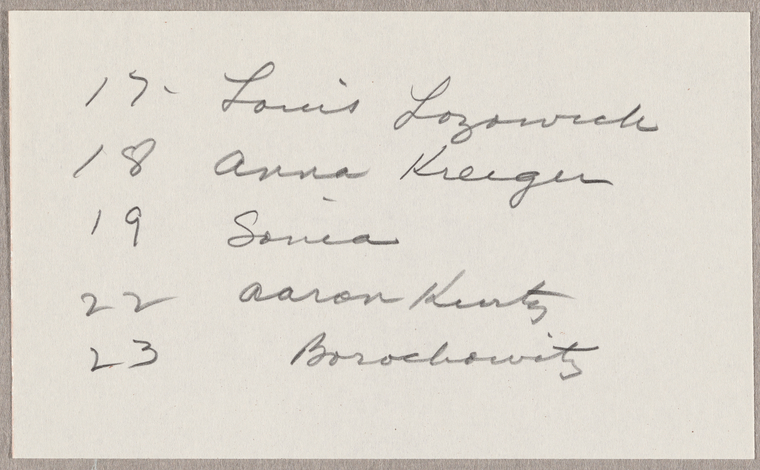 17- Louis Lozowick
18 Anna Kreiger
19 Sonia
22 Aaron Kurtz
23 Borochowitz